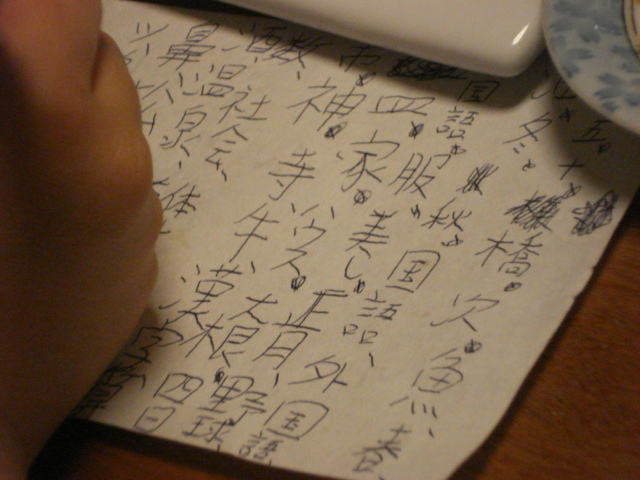 五。十。
冬。橋。次。魚、春
国語。秋。国語、外国語、
皿。服。美し。正月、野球、
市。神。家。ハウス。大根。四日
酒、数、寺、牛、漢字
鼻、温泉、社会、
雑